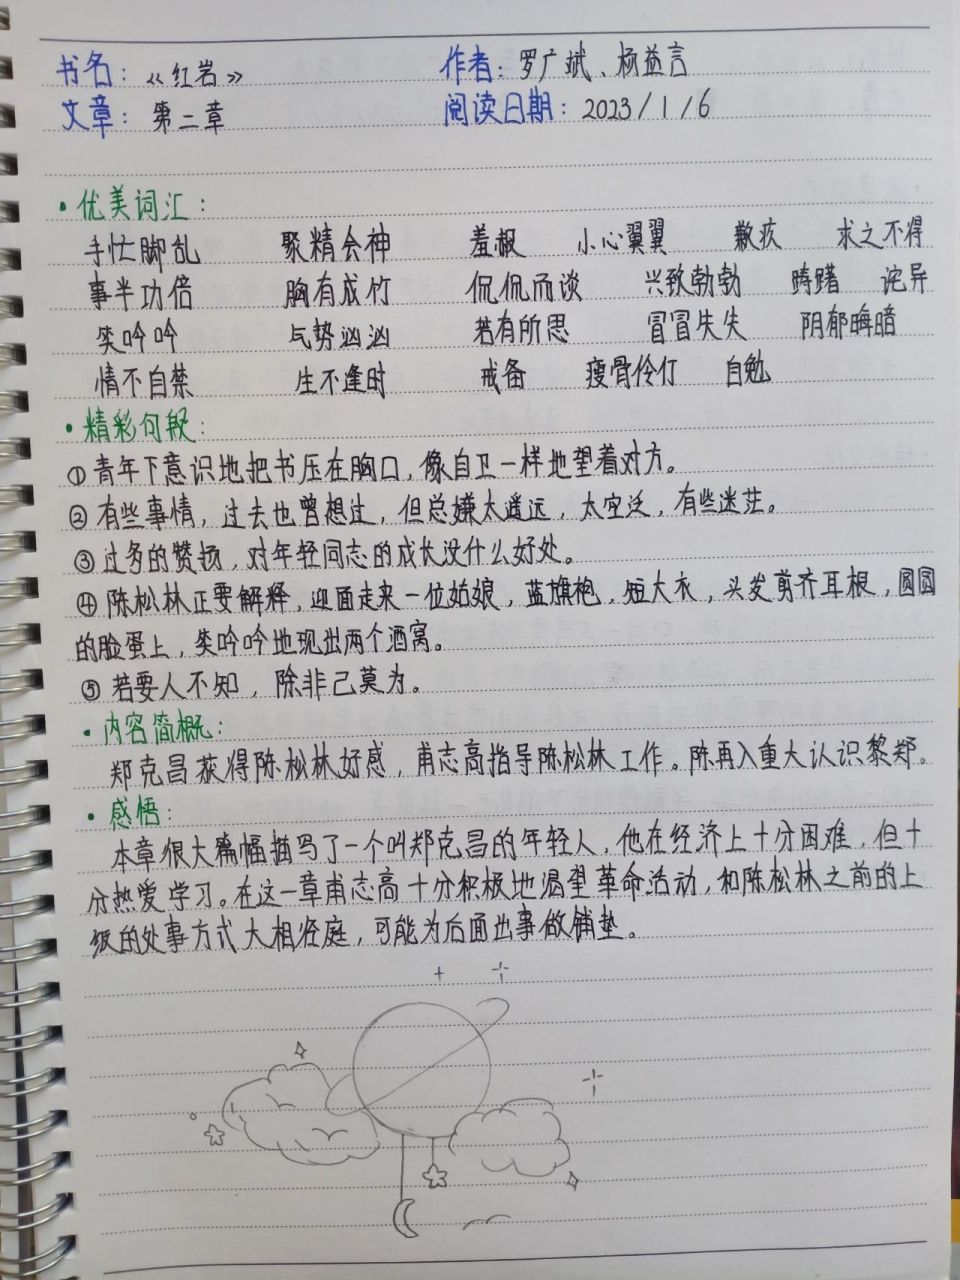 书名：《红岩》 作者：罗广斌、杨益言
文章：第二章 阅读日期：2023/1/6
·优美词汇：
手忙脚乱 聚精会神 羞赧 小心翼翼 歉疚 求之不得
事半功倍 胸有成竹 侃侃而谈 兴致勃勃 踌躇 诧异
笑吟吟 气势汹汹 若有所思 冒冒失失 阴郁晦暗
情不自禁 生不逢时 戒备 瘦骨伶仃 自勉
·精彩句段：
①青年下意识地把书压在胸口，像自卫一样地望着对方。
②有些事情，过去也曾想过，但总嫌太遥远，太空泛，有些迷茫。
③过多的赞扬，对年轻同志的成长没什么好处。
④陈松林正要解释，迎面走来一位姑娘，蓝旗袍，短大衣，头发剪齐耳根，圆圆
的脸蛋上，笑吟吟地现出两个酒窝。
⑤若要人不知，除非己莫为。
·内容简概：
郑克昌获得陈松林好感，甫志高指导陈松林工作。陈再入重大认识黎郑。
·感悟：
本章很大篇幅描写了一个叫郑克昌的年轻人，他在经济上十分困难，但十
分热爱学习。在这一章甫志高十分积极地渴望革命活动，和陈松林之前的上
级的处事方式大相径庭，可能为后面出事做铺垫。